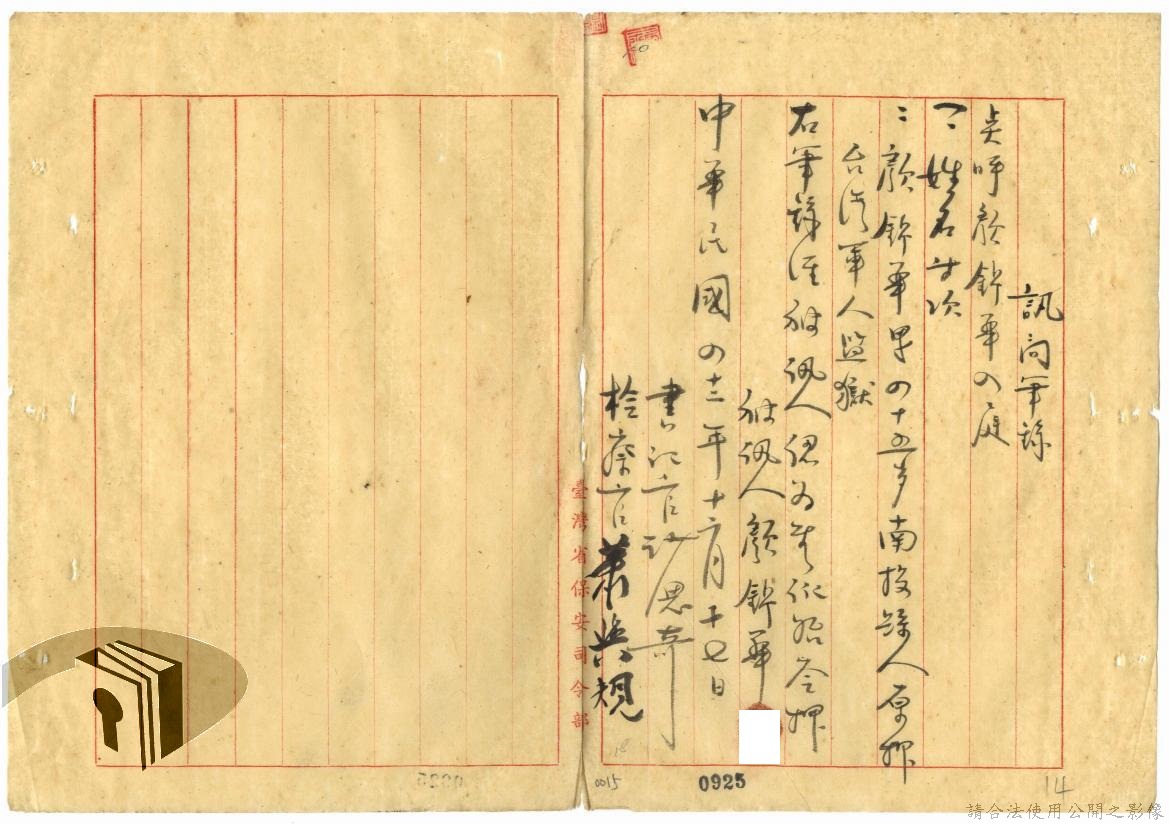 訊問筆錄
点呼顏錦華入庭
一:姓名年次
二:顏錦華男四十五岁南投縣人原押
台湾軍人監獄
右筆錄經被訊人認為無訛始令押
被訊人顏錦華
中華民國四十三年十二月十七日
書記官
檢察官
臺灣省保安司令部
0015
0925
14
請合法使用公開之影像